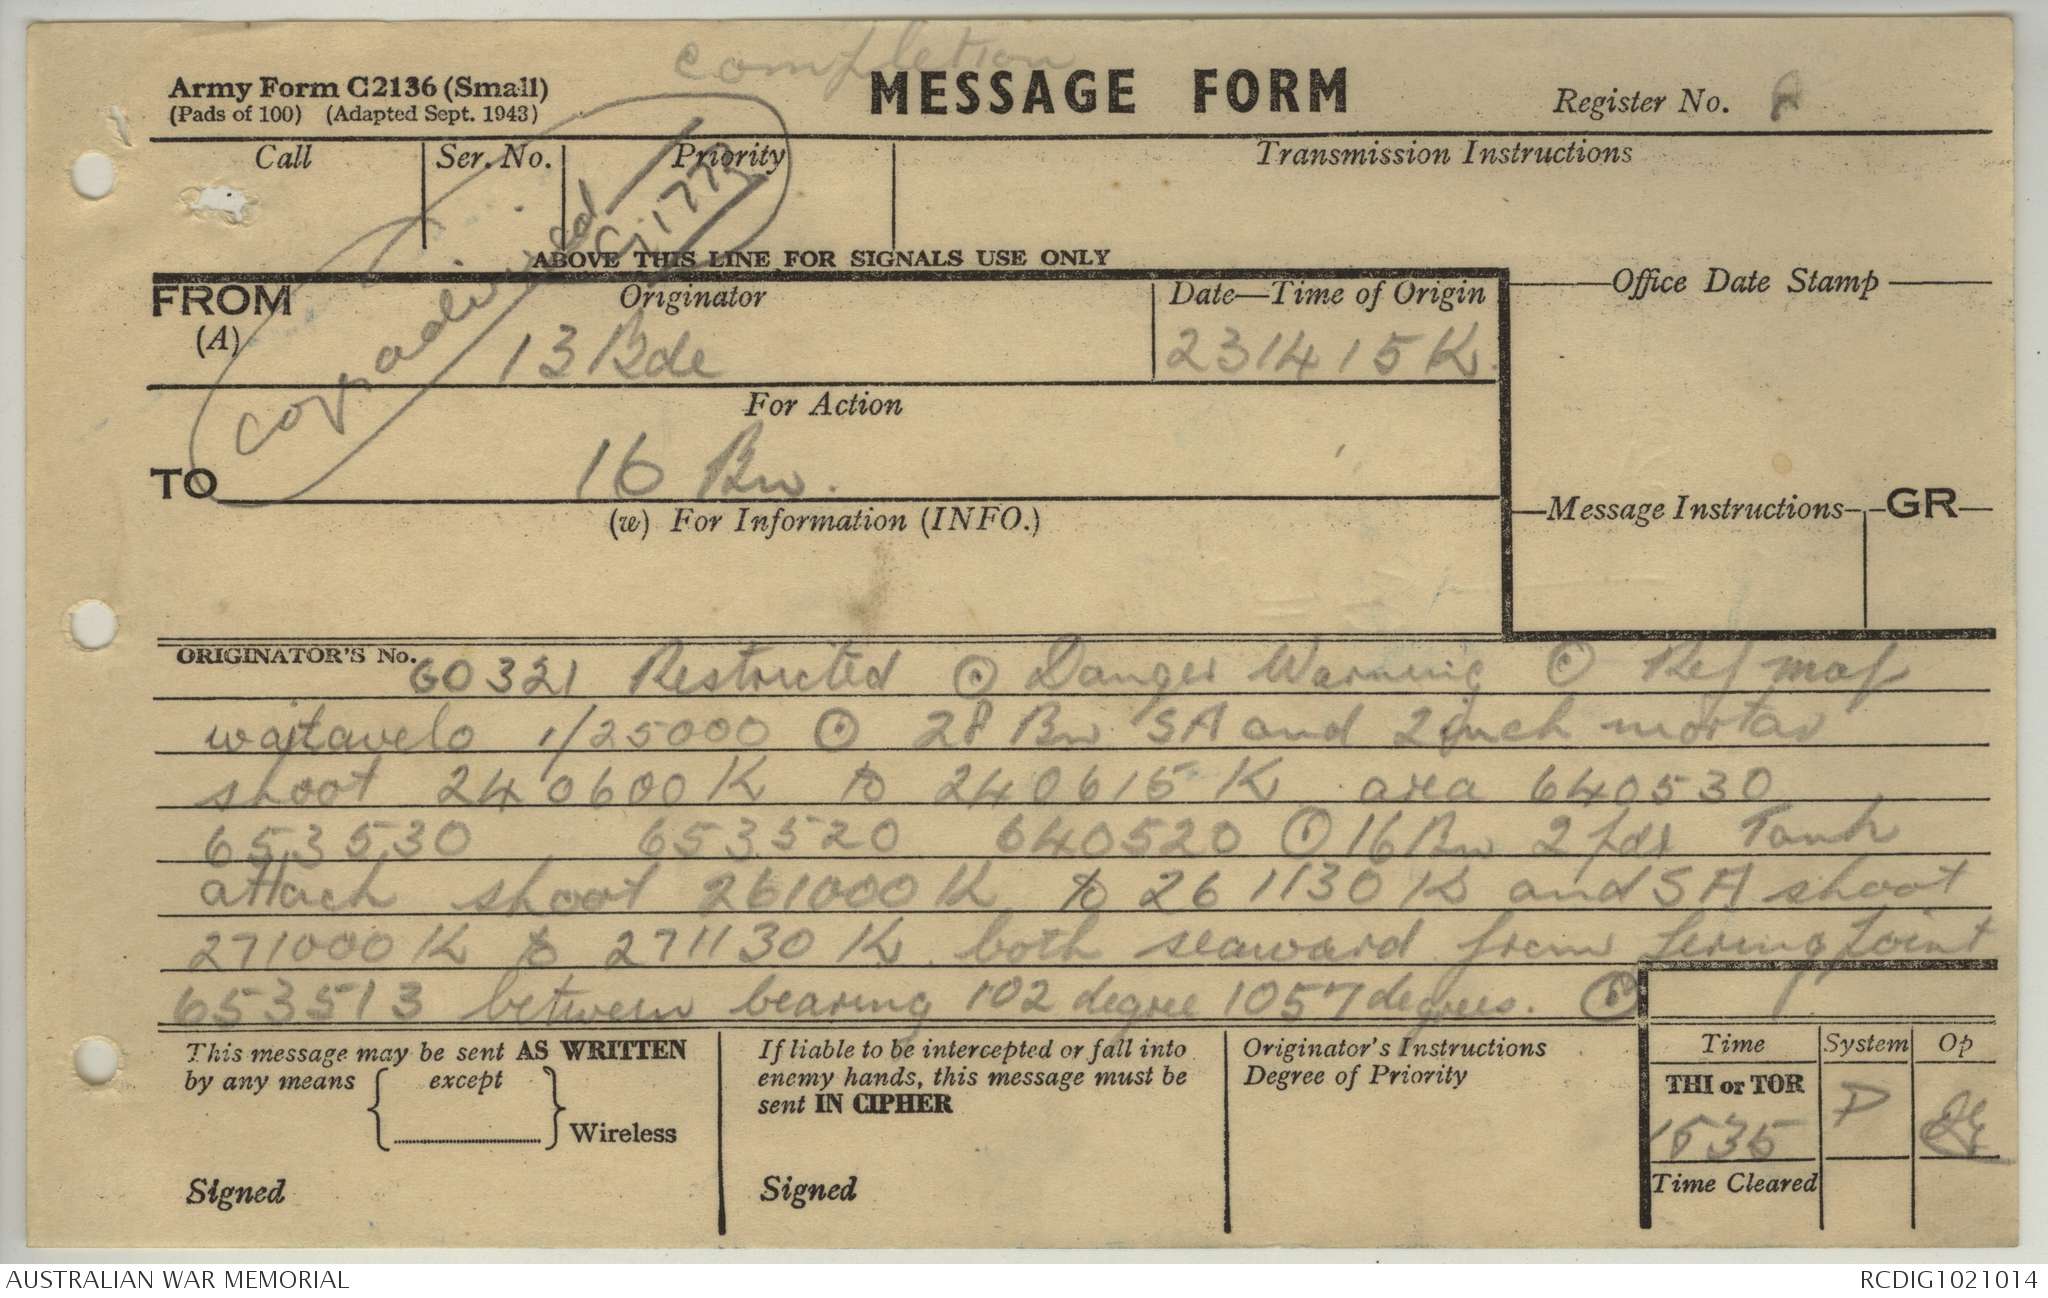 completion
Army Form C2136 (Small)
(Pads of 100) (Adapted Sept. 1943)
MESSAGE FORM
Register No.
Call
Ser. No.
Priority
Transmission Instructions
ABOVE THIS LINE FOR SIGNALS USE ONLY
FROM
(A)
Originator
13 Bde
Date—Time of Origin
231415K.
Office Date Stamp
For Action
TO
16 Bn.
(w) For Information (INFO.)
Message Instructions
GR
ORIGINATOR'S No.
GO321 Restricted ⊙ Danger Warning ⊙ Ref map
waitavelo 1/25000 ⊙ 28 Bn SA and 2 inch mortar
shoot 240600K to 240615K area 640530
653530 653520 640520 ⊙ 16 Bn 2 pdr Tank
attach shoot 261000K to 261130K and SA shoot
271000K to 271130K both seaward from firing point
653513 between bearing 102 degree 1057 degrees. ⊙
This message may be sent AS WRITTEN
by any means
except
Wireless
Signed
If liable to be intercepted or fall into
enemy hands, this message must be
sent IN CIPHER
Signed
Originator's Instructions
Degree of Priority
Time
System
Op
THI or TOR
1535
P
Time Cleared
AUSTRALIAN WAR MEMORIAL
RCDIG1021014